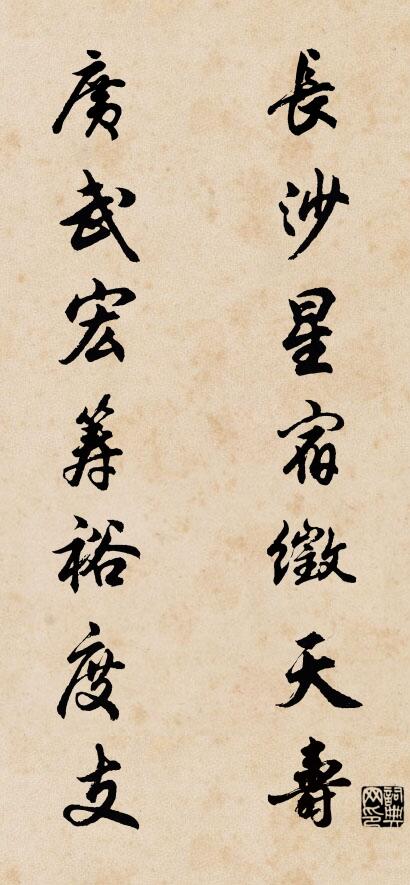 長沙星宿徵天壽
廣武宏籌裕度支
詞典网印